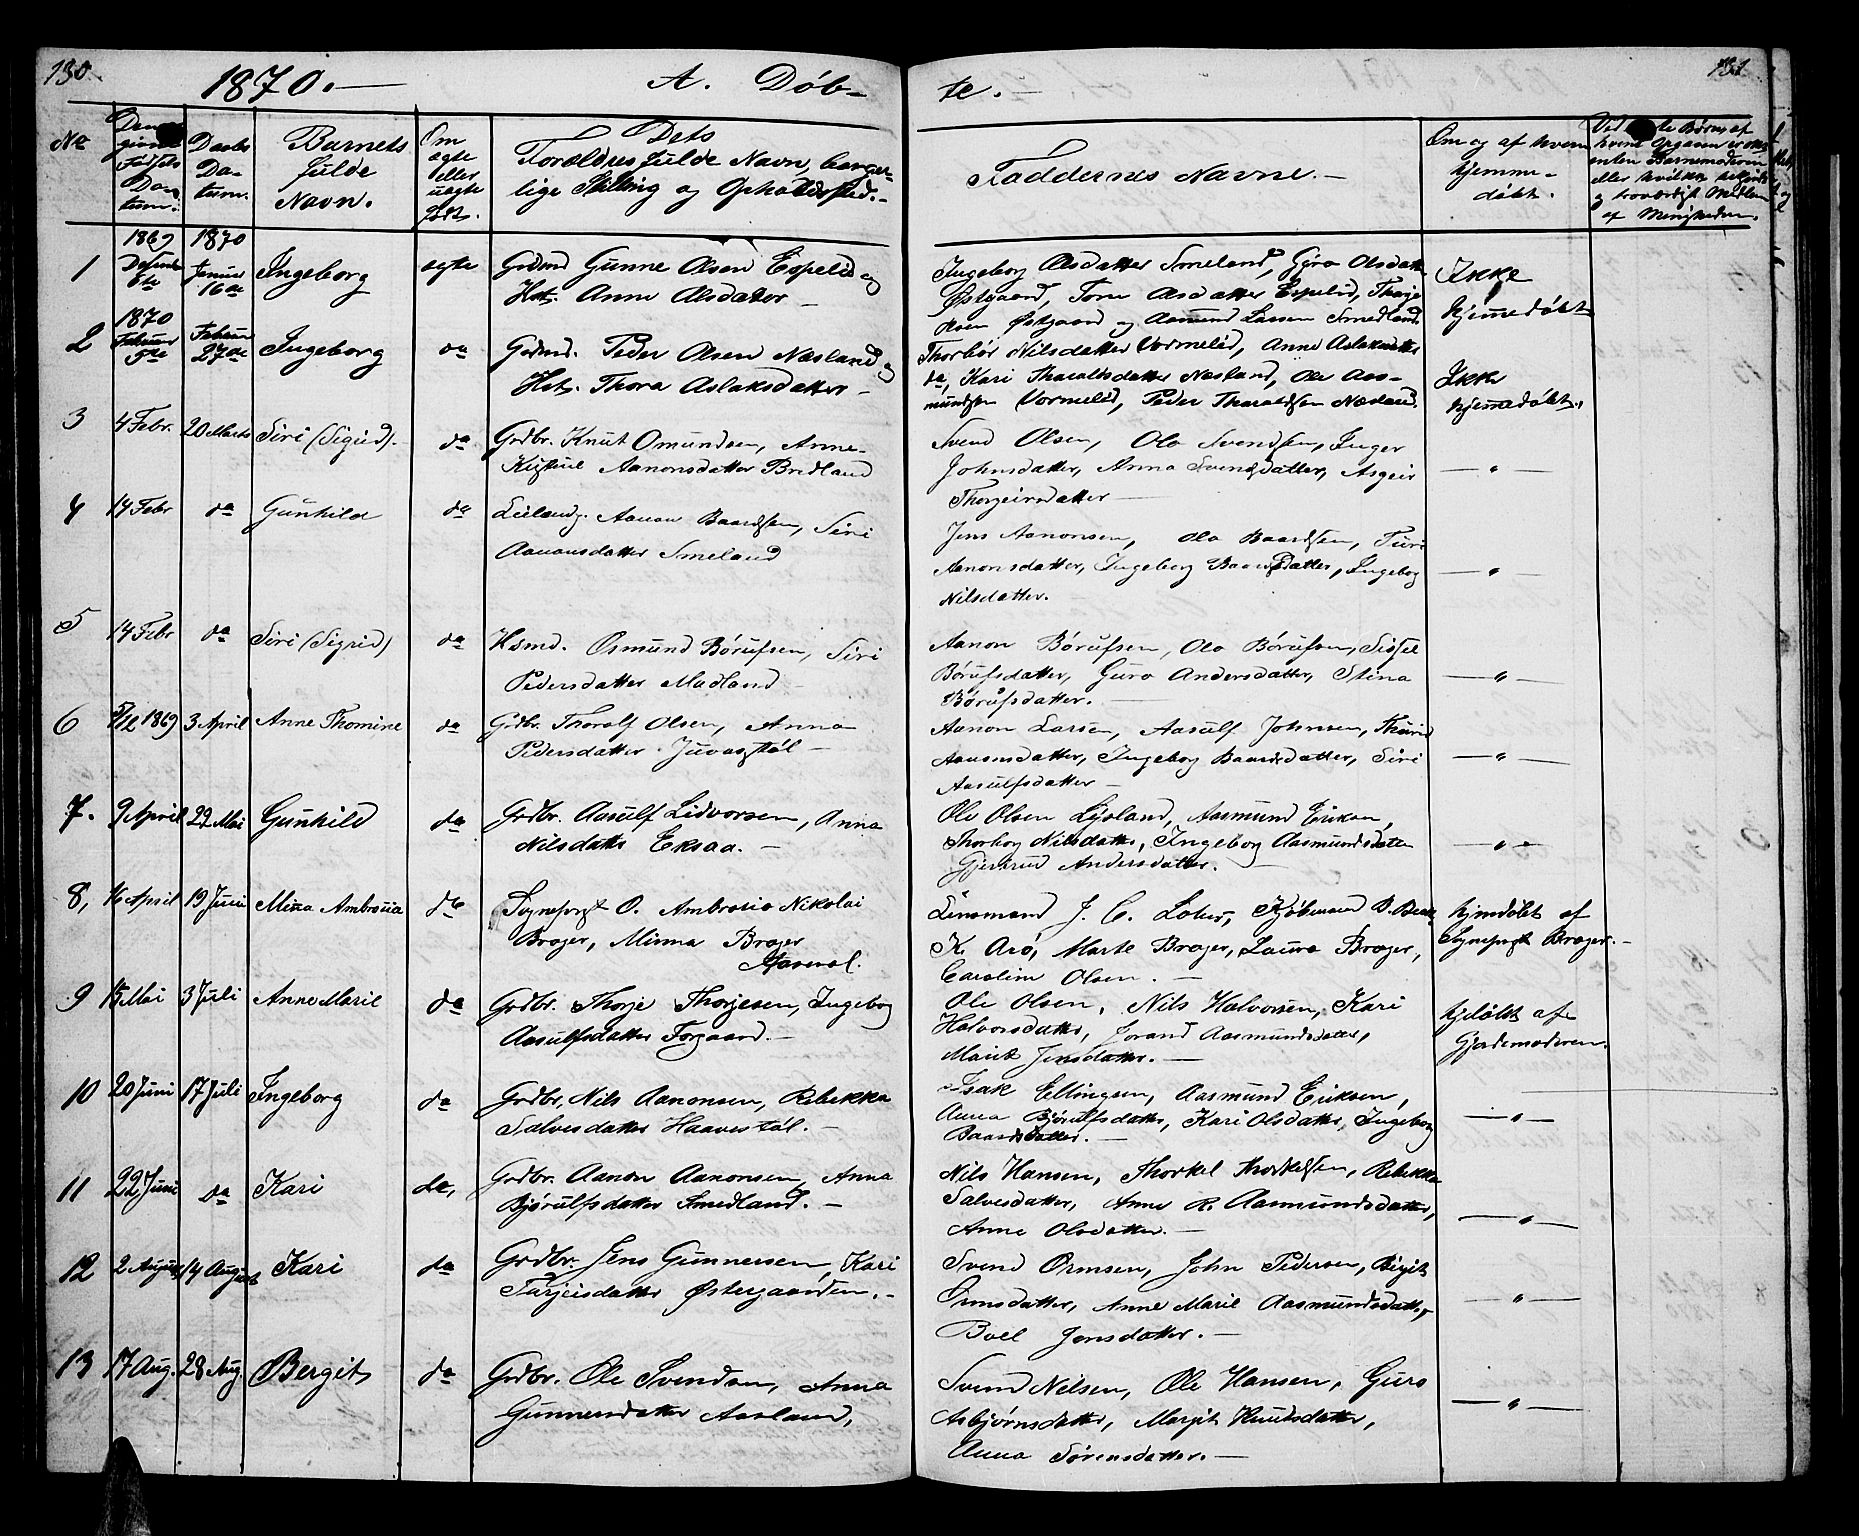 130.
1870. — A. Döb- te. —
131
No
Dens
Fødsels
Da-
tum.
Daabs
Da-
tum.
Barnets
fulde
Navn.
Om
ægte
eller
uægte
født.
Dets
Forældres fulde Navn, borger-
lige Stilling og Opholdssted. —
Faddernes Navne. —
Om og af hvem
hjemme-
døbt.
af Menigheden.
1
1869
Decembr
6te
1870
Januar
16de
Ingeborg
ægte
Grdmd Gunne Olsen Espelid og
Hst. Anne Olsdatter —
Ingeborg Olsdatter Smeland, Gyro Olsdatter
Østgaard, Tone Olsdatter Espelid, Thorje
Østgaard og Aamund Larsen Smedland.
Ikke
hjemmedøbt
2
1870
Februar
5te
Februar
27de
Ingeborg
do
Grdmd. Peder Olsen Næsland og
Hst. Thora Aslaksdatter —
Thorbør Nilsdatter Vormelid, Anne Aslaksdatter
do, Kari Tharaldsdatter Næsland, Ole Aas-
mundsen Vormelid, Peder Tharaldsen Næsland.
Ikke
hjemmedøbt.
3
4 Febr.
20 Marts
Siri (Sigrid).
do
Grdbr. Knut Omundsen, Anne-
Kistine Aanonsdatter Bredland
Svend Olsen, Ole Svendsen, Inger
Johnsdatter, Anna Svendsdatter, Asgeir
Thorgeirsdatter —
— " —
4
14 Febr
do
Gunhild
do
Leilændg. Aanon Baardsen, Siri
Aanonsdatter Smeland
Jens Aanonsen, Ole Baardsen, Turi
Aanonsdatter, Ingeborg Baardsdatter, Ingeborg
Nilsdatter.
— " —
5
14 Febr
do
Siri (Sigrid)
do
Hsmd. Osmund Børufsen, Siri
Pedersdatter Madland
Aanon Børufsen, Ole Børufsen, Sissel
Børufsdatter, Guro Andersdatter, Stina
Børufsdatter. —
— " —
6
5/12 1869
3 April
Anne Thomine
do
Grdbr. Thoralf Olsen, Anna
Pedersdatter Juvastøl —
Aanon Larsen, Aasulf Johnsen, Thurid
Aanonsdatter, Ingeborg Baardsdatter, Siri
Aasulfsdatter —
— " —
7.
9 April
22 Mai
Gunhild
do
Grdbr. Aasulf Lidvorsen, Anna
Nilsdatter Eksaa. —
Ole Olsen Ljosland, Aasmund Eriksen,
Thorborg Nilsdatter, Ingeborg Aasmundsdatter
Gjertrud Andersdatter. —
— " —
8,
16 April
19 Juni
Mina Ambrosia
do
Sogneprgst O. Ambrosio Nikolai
Brager, Minna Brager
Aaseral.
Lensmand J. C. Kjøbmand
K. Arö, Marte Brager, Laura Brager,
Caroline Olsen. —
hjmdøbt af
Sogneprgst Brager. —
9
15 Mai
3 Juli
Anne Marie
do
Grdbr. Thorje Thorjesen, Ingeborg
Aasulfsdatter Forgaard. —
Ole Olsen, Nils Halvorsen, Kari
Halvorsdatter, Jorand Aasmundsdatter,
Marit Jensdatter. —
hjdøbt af
Gjordemoderen.
10
20 Juni
17 Juli
Ingeborg
do
Grdbr. Nils Aanonsen, Rebekka
Salvesdatter Haavestøl. —
Isak Ellingsen, Aasmund Eriksen,
Anna Bjørulfsdatter, Kari Olsdatter, Ingeborg
Baardsdatter. —
— " —
11
22 Juni
do
Kari
do,
Grdbr. Aanon Aanonsen, Anna
Bjørulfsdatter Smedland. —
Nils Hansen, Thorkel Thorkelsen, Rebekka
Salvesdatter, Anne R. Aasmundsdatter,
Anne Olsdatter. —
— " —
12
2 August
14 August
Kari
do
Grdbr. Jens Gunnersen, Kari
Tarjeisdatter Østergaarden. —
Svend Ormsen, John Pedersen, Birgit
Ormsdatter, Anne Marie Aasmundsdatter,
Boel Jensdatter. —
— " —
13
17 Aug.
28 Aug.
Bergit
do
Grdbr. Ole Svendsen, Anna
Gunnersdatter Aasland,
Svend Nilsen, Ole Hansen, Guro
Asbjørnsdatter, Margit Knutsdatter,
Anna Sørensdatter. —
— " —